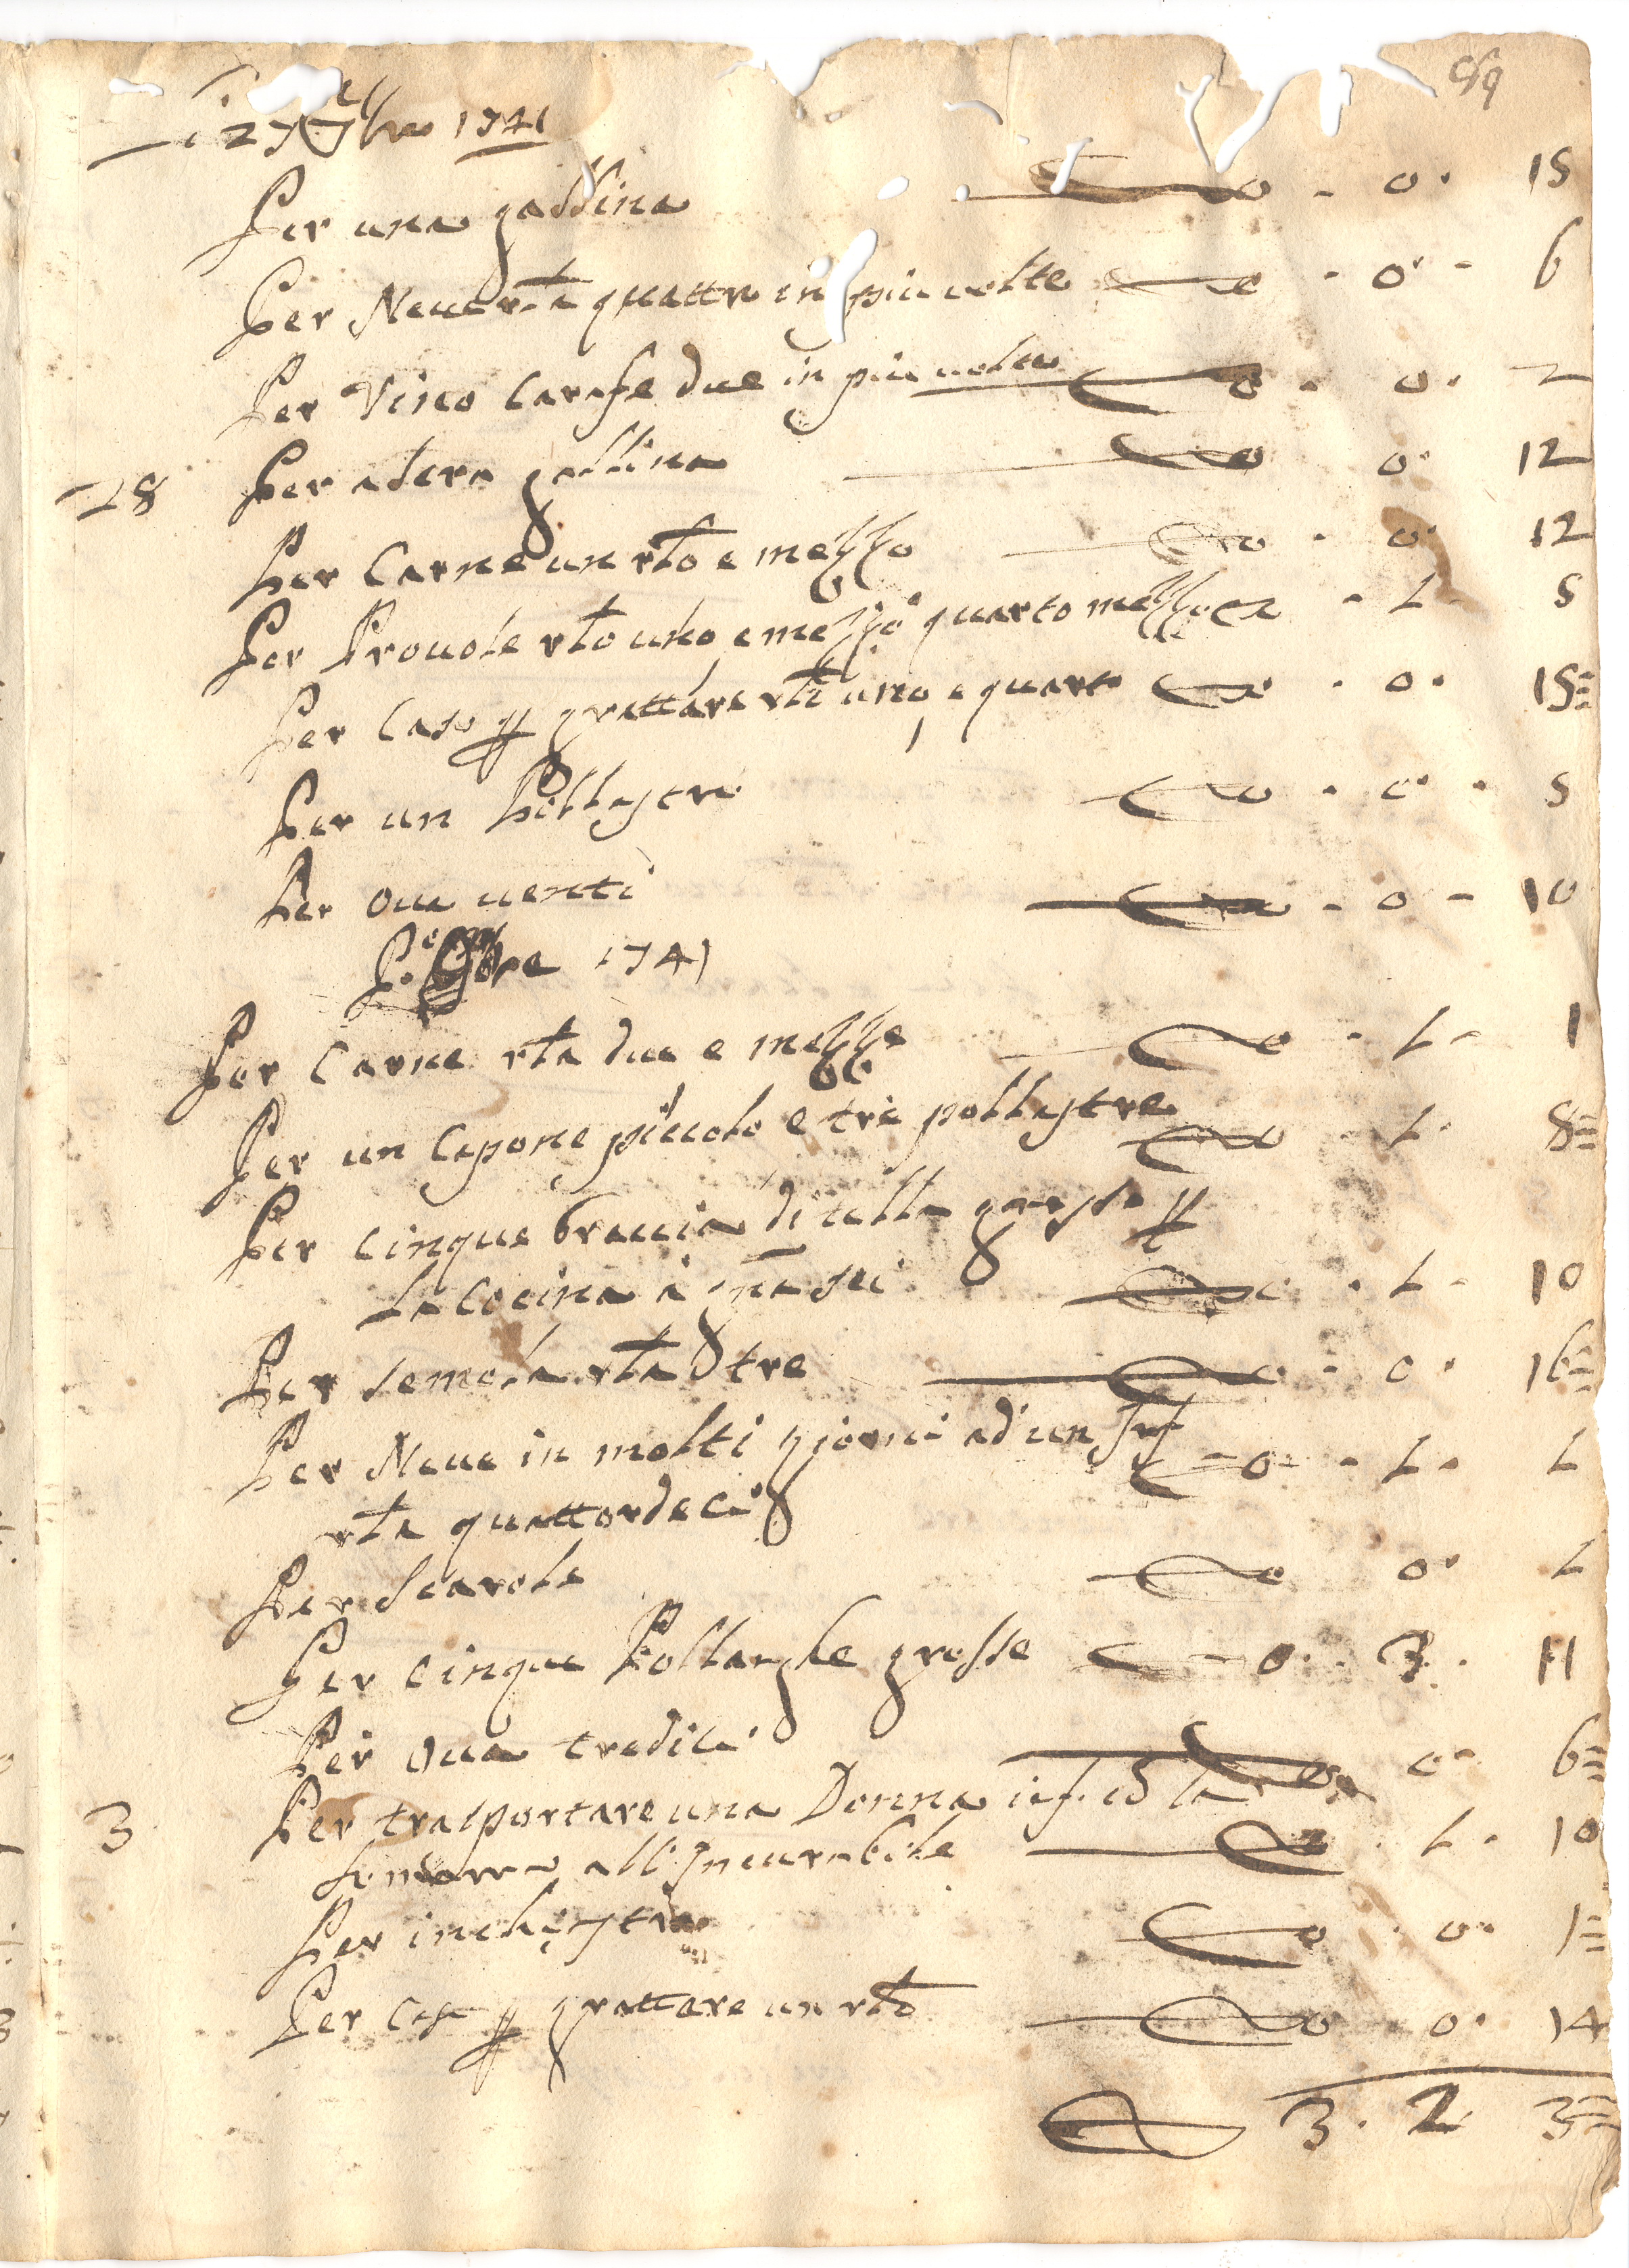 27 7bre 1741
Per una gallina — 0 - 0 · 15
Per Neue rta quattro in più uolte — 0 - 0 - 6
Per Vino Carafe due in più uolte — 0 - 0 · 2
28 Per altera gallina — 0 0 · 12
Per Carne un rto e mezzo — 0 · 0 · 12
Per Prouole rto uno, e mezzo quarto mezzo · 1 · 5
Per Caso p grattare rti uno, e quarto — 0 · 0 · 15=
Per un Pollastro — 0 · 0 · 5
Per oua uenti — 0 - 0 - 10
P.o 8bre 1741
Per Carne rta due e mezze — 0 · 1 - 1
Per un Capone piccolo e tre pollastre — 0 · 1 · 8=
Per cinque braccia di tella p
la Cocina à gna sei — 0 · 1 - 10
Per semola rta tre — 0 · 0 · 16=
Per Neue in molti giorni ad un — 0 - 1 · 1
rta quattordeci
Per Scarole — 0 0 · 1
Per cinque Pollanghe grosse — 0 · 3 · 11
Per oua tredici — 0 0 - 6=
3 Per trasportare una Donna inf. co la
all'Incurabile — 0 · 1 · 10
Per inchiostro — 0 · 0 · 1=
Per Caso p grattare un rto — 0 0 · 14
3 · 2 3=